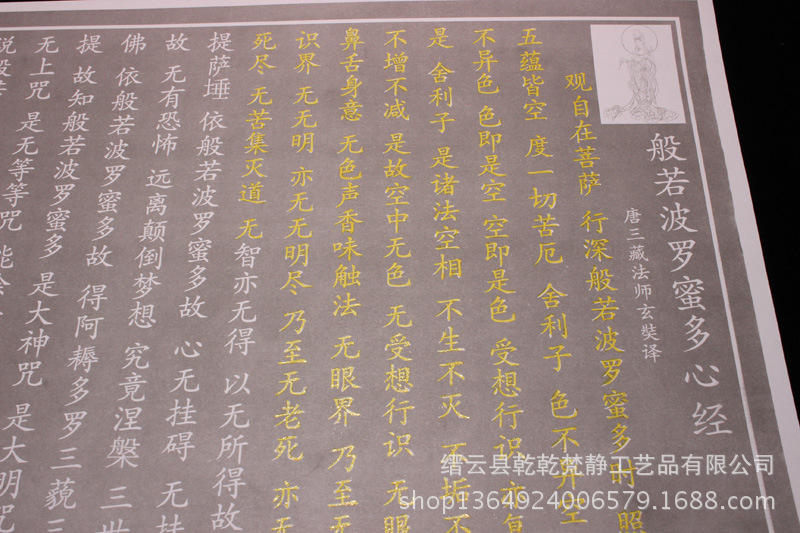 般若波罗蜜多心经
唐三藏法师玄奘译
观自在菩萨 行深般若波罗蜜多时 照
五蕴皆空 度一切苦厄 舍利子 色不异空
不异色 色即是空 空即是色 受想行识 亦复
是 舍利子 是诸法空相 不生不灭 不垢不
不增不减 是故空中无色 无受想行识 无眼
鼻舌身意 无色声香味触法 无眼界 乃至无
识界 无无明 亦无无明尽 乃至无老死 亦无
死尽 无苦集灭道 无智亦无得 以无所得故
提萨埵 依般若波罗蜜多故 心无挂碍 无挂
故 无有恐怖 远离颠倒梦想 究竟涅槃 三世
佛 依般若波罗蜜多故 得阿耨多罗三藐三
提 故知般若波罗蜜多 是大神咒 是大明咒
无上咒 是无等等咒 能
缙云县乾乾梵静工艺品有限公司
shop1364924006579.1688.com